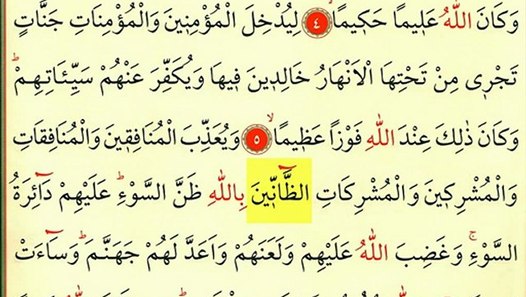 وَكَانَ اللّٰهُ عَل۪يمًا حَك۪يمًاۙ ﴿٤﴾ لِيُدْخِلَ الْمُؤْمِن۪ينَ وَالْمُؤْمِنَاتِ جَنَّاتٍ
تَجْر۪ي مِنْ تَحْتِهَا الْاَنْهَارُ خَالِد۪ينَ ف۪يهَا وَيُكَفِّرَ عَنْهُمْ سَيِّـَٔاتِهِمْۜ
وَكَانَ ذٰلِكَ عِنْدَ اللّٰهِ فَوْزًا عَظ۪يمًاۙ ﴿٥﴾ وَيُعَذِّبَ الْمُنَافِق۪ينَ وَالْمُنَافِقَاتِ
وَالْمُشْرِك۪ينَ وَالْمُشْرِكَاتِ الظَّٓانّ۪ينَ بِاللّٰهِ ظَنَّ السَّوْءِۜ عَلَيْهِمْ دَٓائِرَةُ
السَّوْءِۚ وَغَضِبَ اللّٰهُ عَلَيْهِمْ وَلَعَنَهُمْ وَاَعَدَّ لَهُمْ جَهَنَّمَۜ وَسَٓاءَتْ